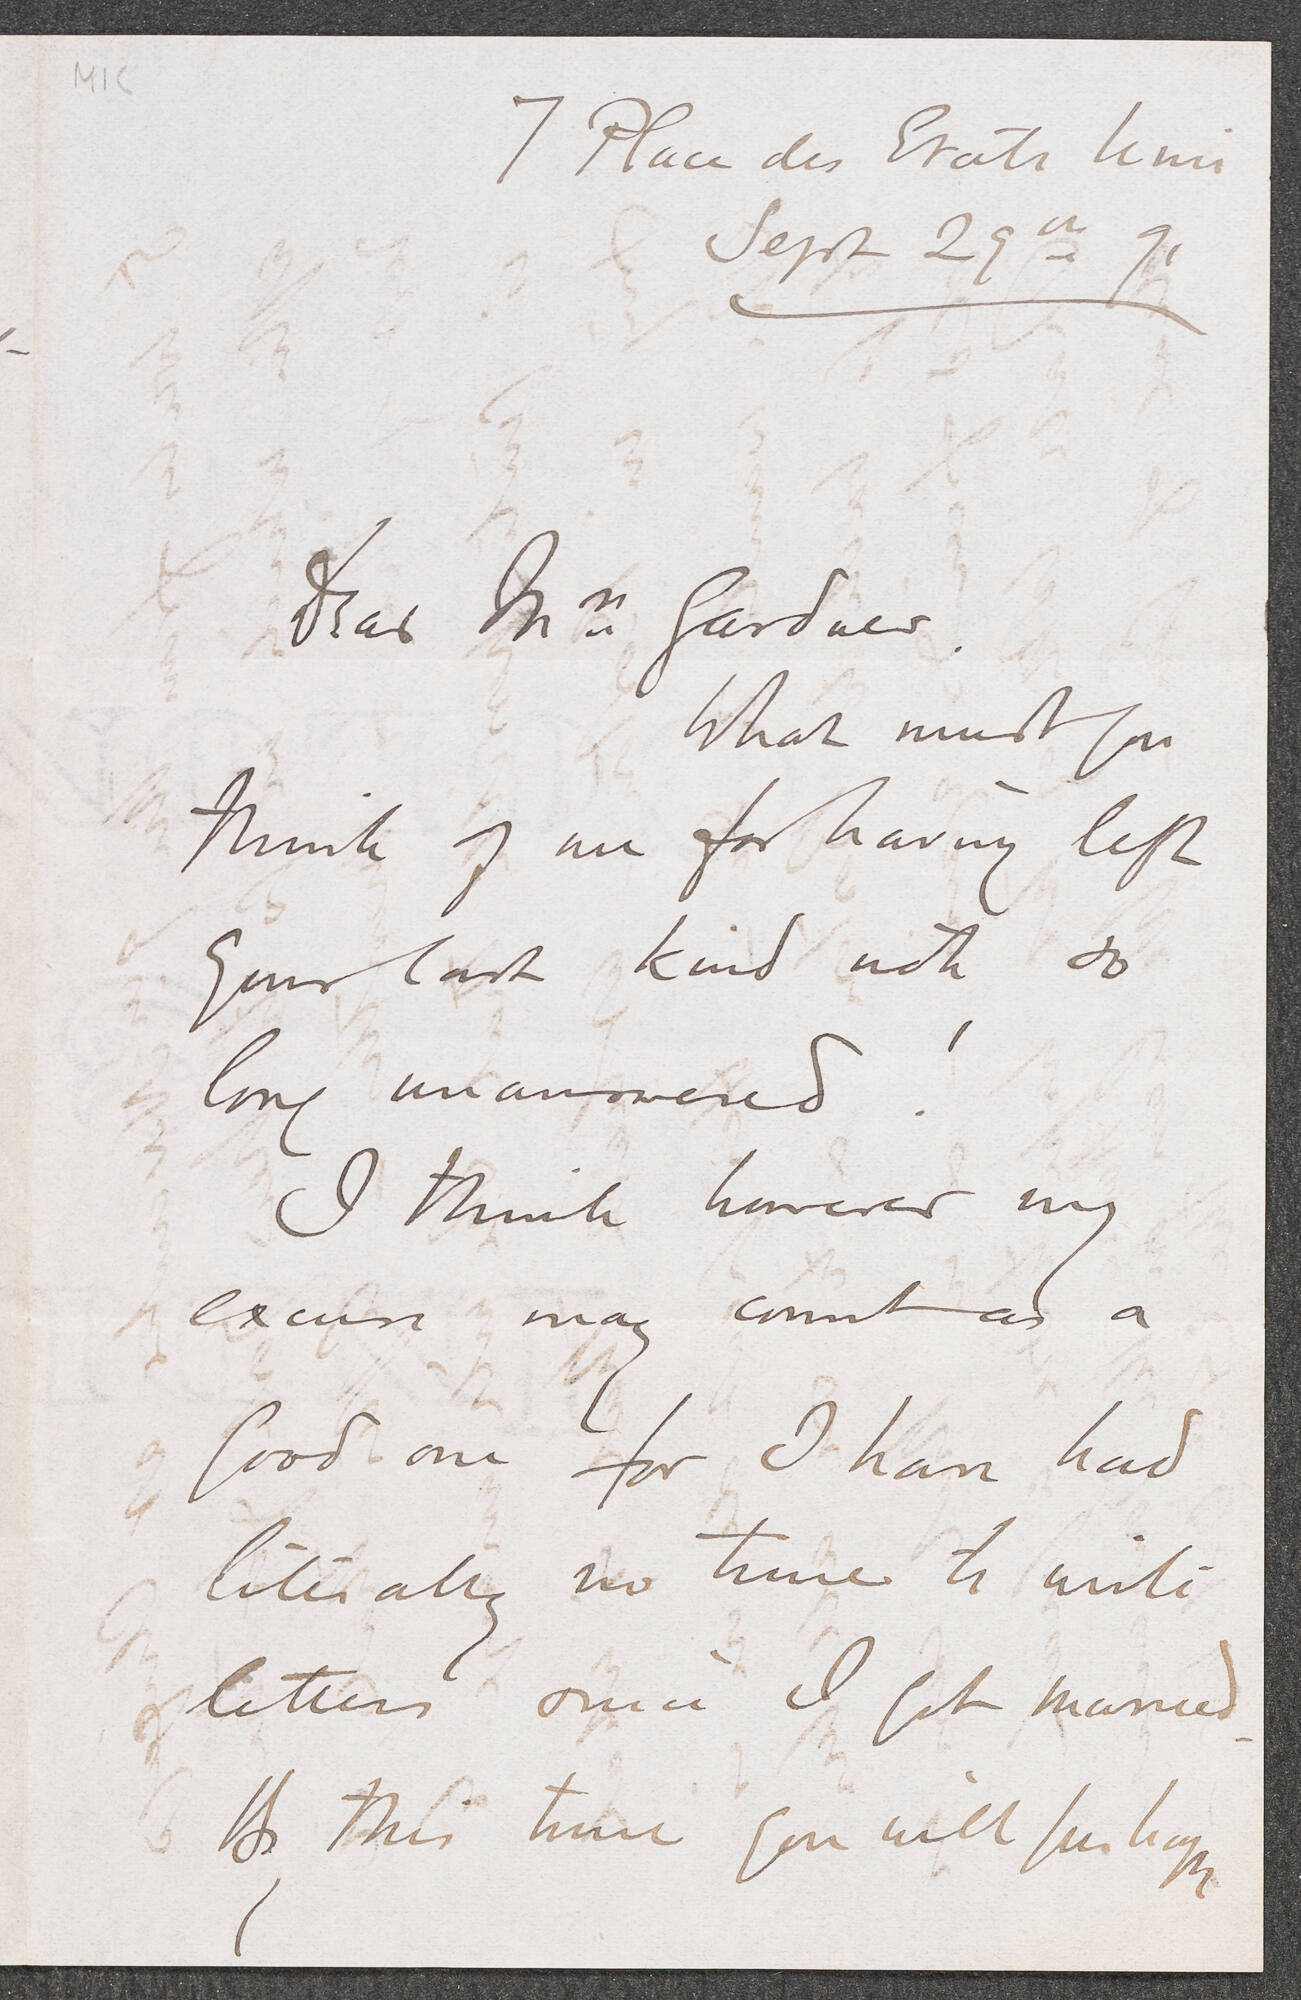 MIC
7 Place des Etats Unis
Sept 29th 91
Dear Mrs Gardner.
What must you
think of me for having left
your last kind note so
long unanswered!
I think however my
excuse may count as a
good one for I have had
literally no time to write
letters since I got married_
By this time you will perhaps